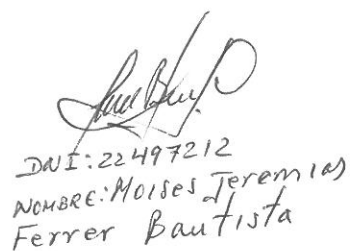 DNI: 22497212
NOMBRE: Moises Jeremias
Ferrer Bautista